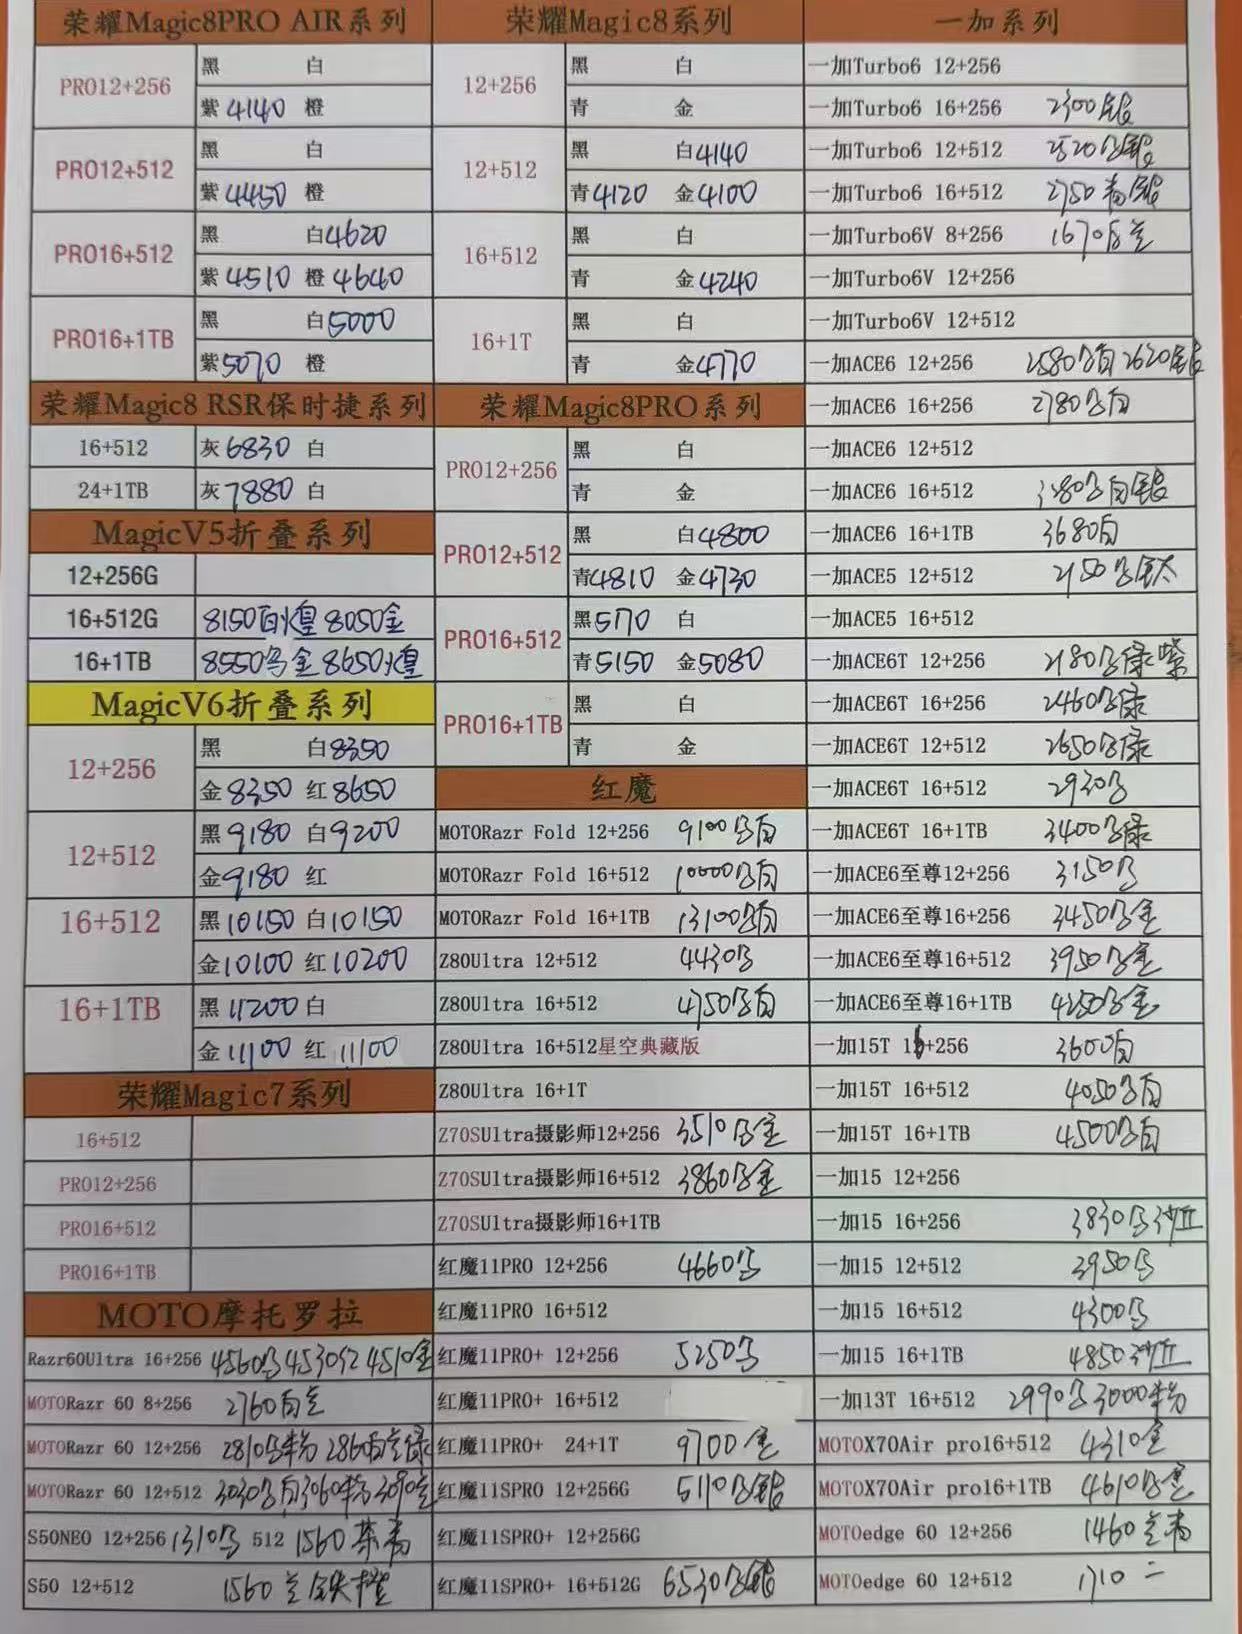 荣耀Magic8PRO AIR系列
PRO12+256 黑 白
紫4140 橙
PRO12+512 黑 白
紫4450 橙
PRO16+512 黑 白4620
紫4510 橙4640
PRO16+1TB 黑 白5000
紫5070 橙
荣耀Magic8 RSR保时捷系列
16+512 灰6830 白
24+1TB 灰7880 白
MagicV5折叠系列
12+256G
16+512G 8150白煌 8050金
16+1TB 8550乌金 8650煌
MagicV6折叠系列
12+256 黑 白8350
金8350 红8650
12+512 黑9180 白9200
金9180 红
16+512 黑10150 白10150
金10100 红10200
16+1TB 黑11200 白
金11100 红11100
荣耀Magic7系列
16+512
PRO12+256
PRO16+512
PRO16+1TB
MOTO摩托罗拉
Razr60Ultra 16+256 4560乌 4530红 4510金
MOTORazr 60 8+256 2760白兰
MOTORazr 60 12+256 2810乌粉 2860白兰绿
MOTORazr 60 12+512 3030乌白3060粉 3090兰
S50NEO 12+256 1310乌 512 1560茶青
S50 12+512 1560兰 橙
荣耀Magic8系列
12+256 黑 白
青 金
12+512 黑 白4140
青4120 金4100
16+512 黑 白
青 金4240
16+1T 黑 白
青 金4770
荣耀Magic8PRO系列
PRO12+256 黑 白
青 金
PRO12+512 黑 白4800
青4810 金4730
PRO16+512 黑5170 白
青5150 金5080
PRO16+1TB 黑 白
青 金
红魔
MOTORazr Fold 12+256 9100乌白
MOTORazr Fold 16+512 10000乌白
MOTORazr Fold 16+1TB 13100乌白
Z80Ultra 12+512 4430乌
Z80Ultra 16+512 4750乌白
Z80Ultra 16+512星空典藏版
Z80Ultra 16+1T
Z70SUltra摄影师12+256 3510乌金
Z70SUltra摄影师16+512 3860乌金
Z70SUltra摄影师16+1TB
红魔11PRO 12+256 4660乌
红魔11PRO 16+512
红魔11PRO+ 12+256 5250乌
红魔11PRO+ 16+512
红魔11PRO+ 24+1T 9700金
红魔11SPRO 12+256G 5110乌银
红魔11SPRO+ 12+256G
红魔11SPRO+ 16+512G 6530乌银
一加系列
一加Turbo6 12+256
一加Turbo6 16+256 2300银
一加Turbo6 12+512 2520乌银
一加Turbo6 16+512 2750青银
一加Turbo6V 8+256 1670乌兰
一加Turbo6V 12+256
一加Turbo6V 12+512
一加ACE6 12+256 2580乌白 2620银
一加ACE6 16+256 2780乌白
一加ACE6 12+512
一加ACE6 16+512 乌白银
一加ACE6 16+1TB 3680白
一加ACE5 12+512 2150乌钛
一加ACE5 16+512
一加ACE6T 12+256 2180乌绿紫
一加ACE6T 16+256 2460乌绿
一加ACE6T 12+512 2650乌绿
一加ACE6T 16+512 2930乌
一加ACE6T 16+1TB 3400乌绿
一加ACE6至尊12+256 3150乌
一加ACE6至尊16+256 3450乌金
一加ACE6至尊16+512 3950乌金
一加ACE6至尊16+1TB 4250乌金
一加15T 16+256 3600白
一加15T 16+512 4050乌白
一加15T 16+1TB 4500乌白
一加15 12+256
一加15 16+256 3830乌沙丘
一加15 12+512 3950乌
一加15 16+512 4300乌
一加15 16+1TB 4850沙丘
一加13T 16+512 2990乌 3000粉
MOTOX70Air pro16+512 4310金
MOTOX70Air pro16+1TB 4610乌金
MOTOedge 60 12+256 1460兰青
MOTOedge 60 12+512 1710 二